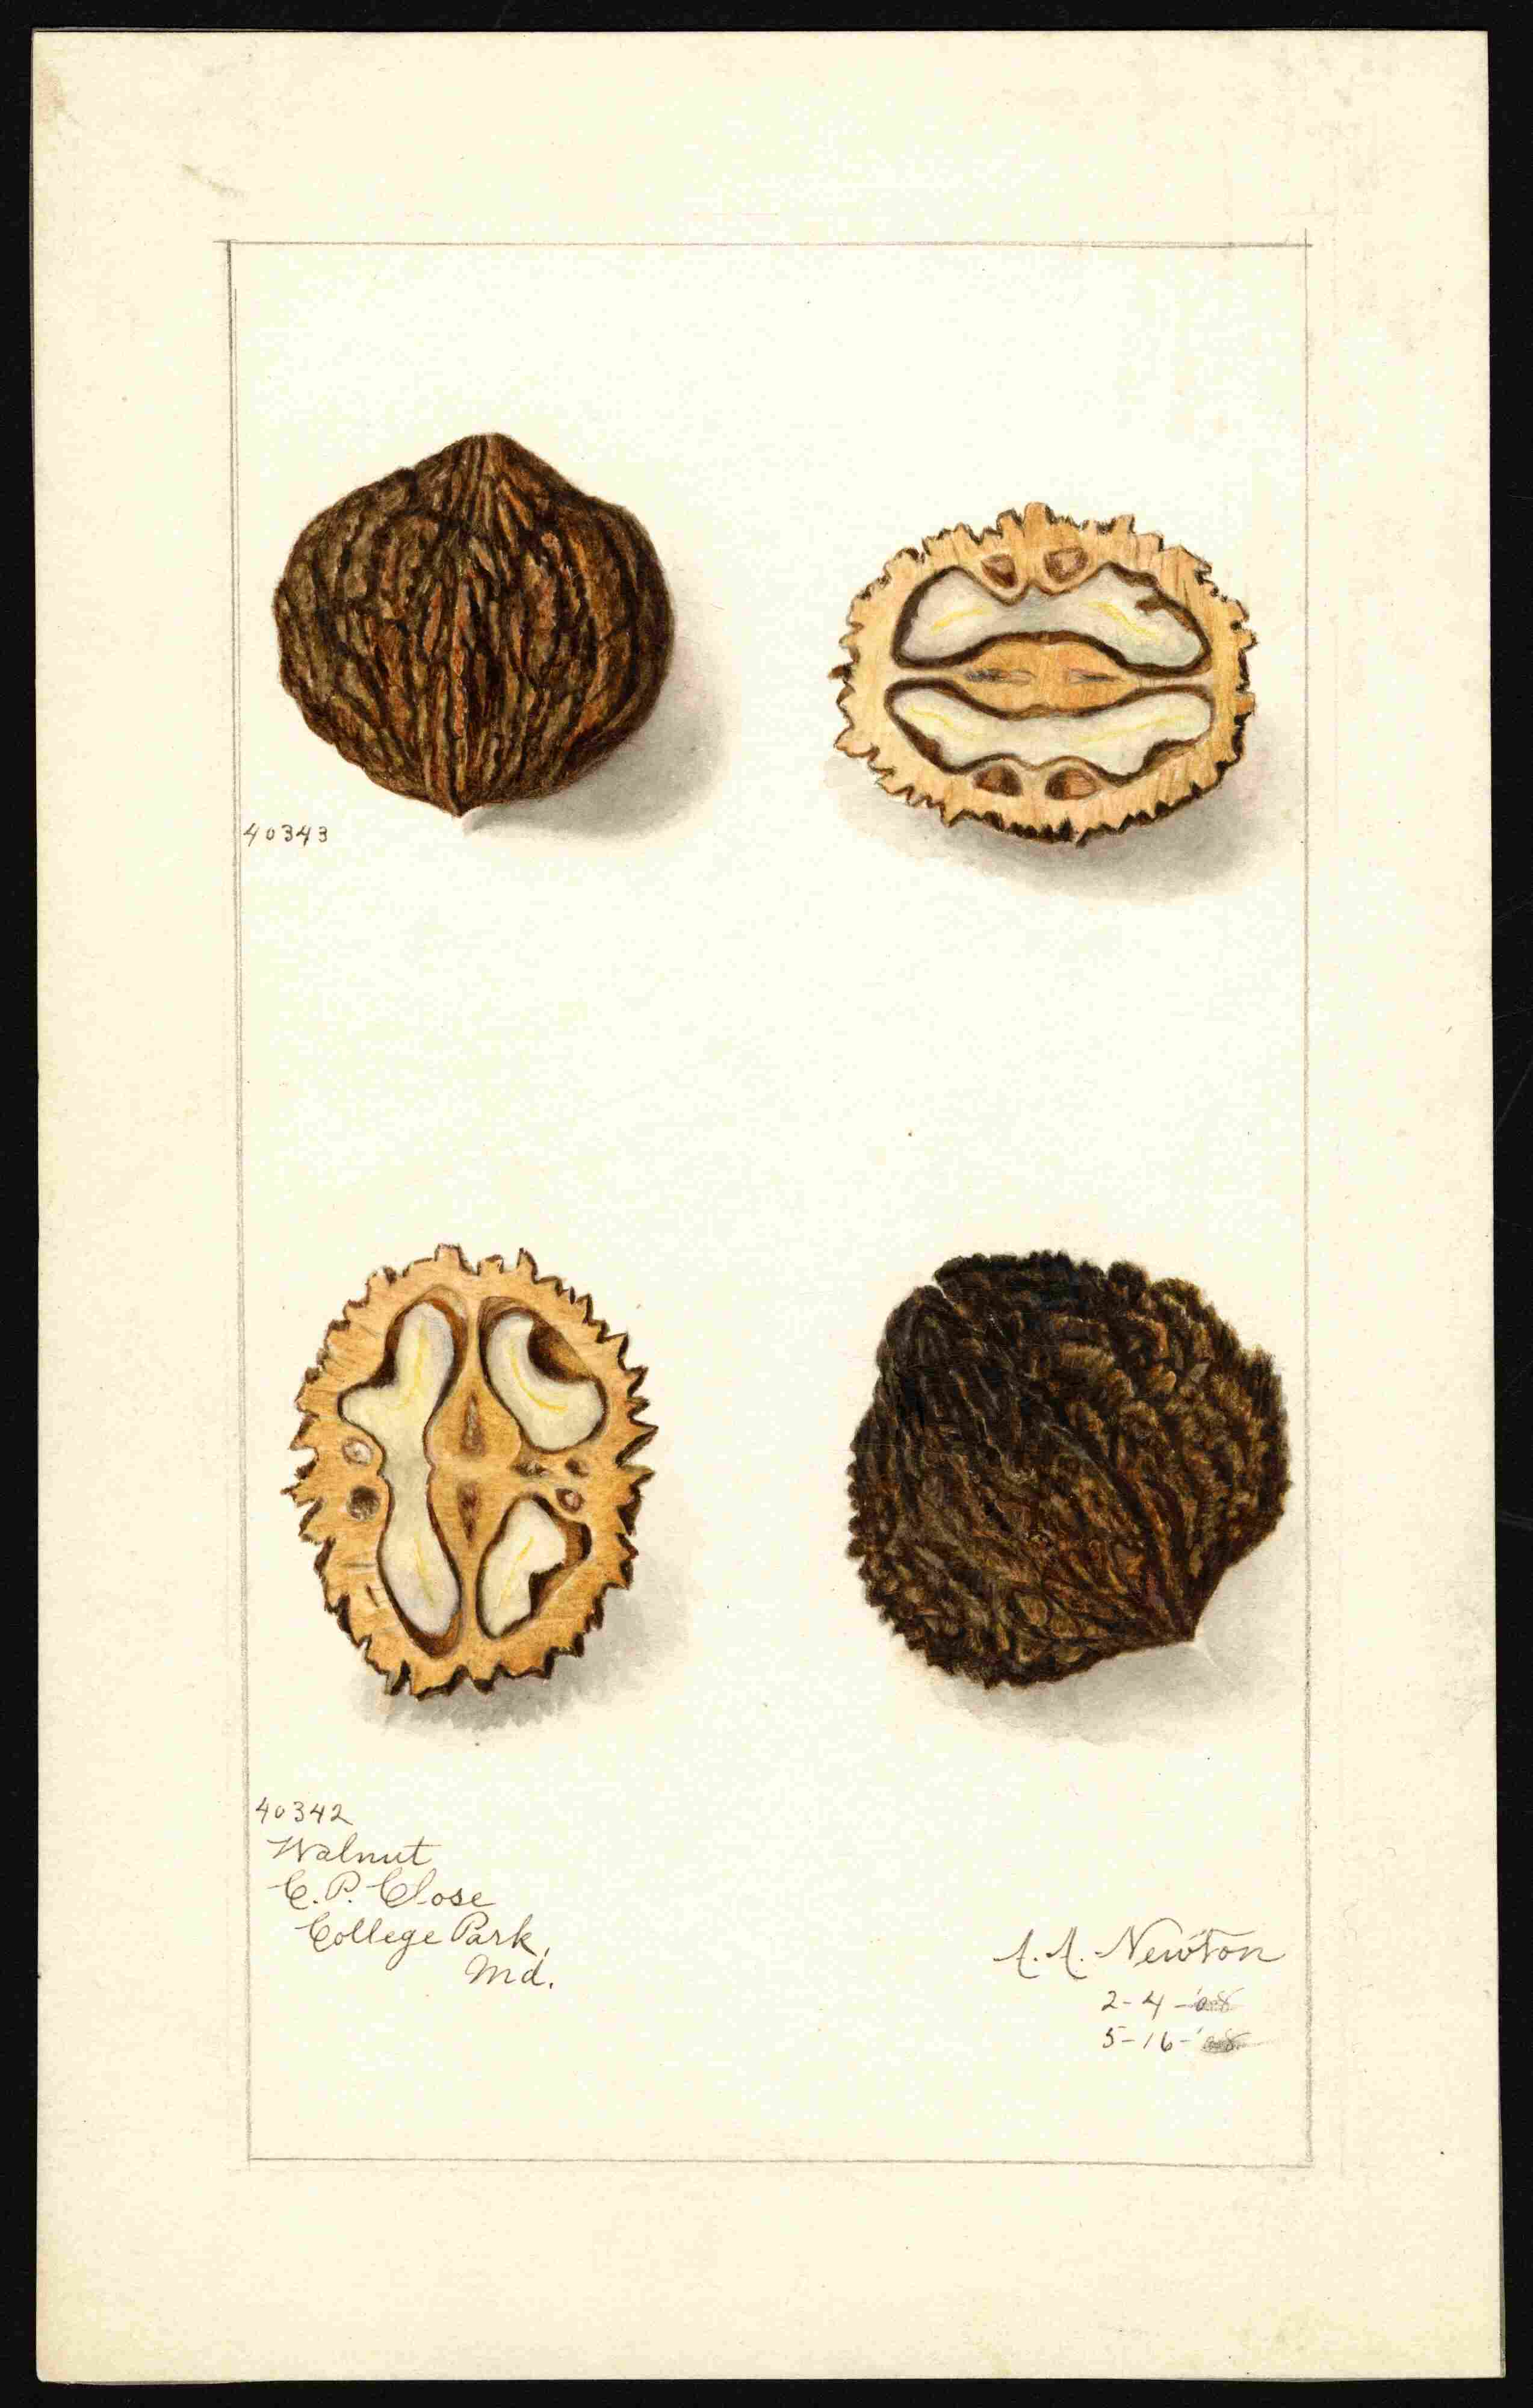 40343
40342
Walnut
C. P. Close
College Park,
Md.
A. A. Newton
2-4-'08
5-16-'08